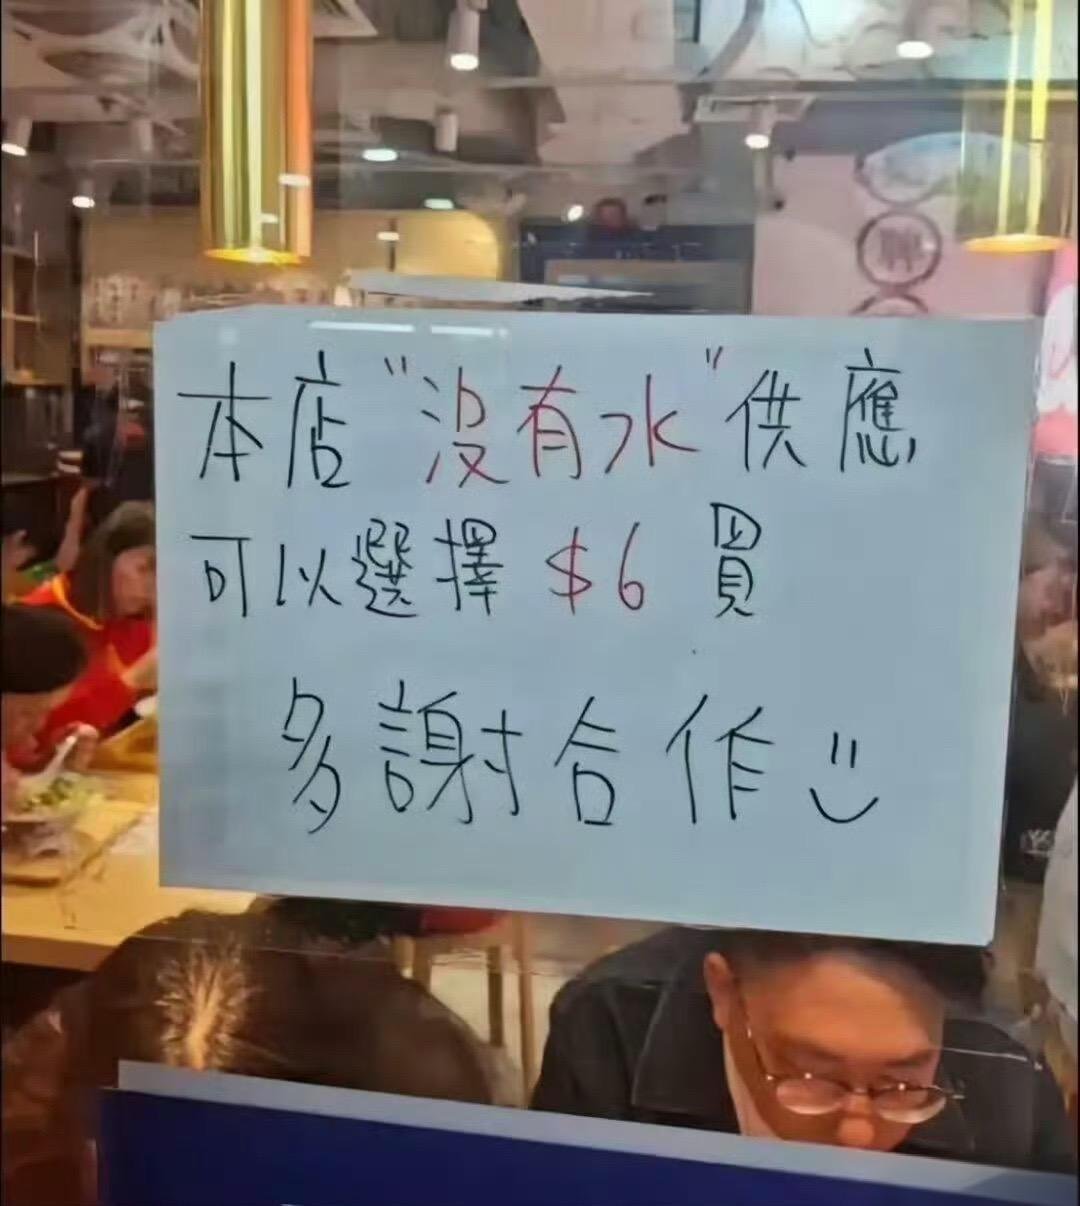 本店"没有水"供應
可以選擇 $6 買
多謝合作